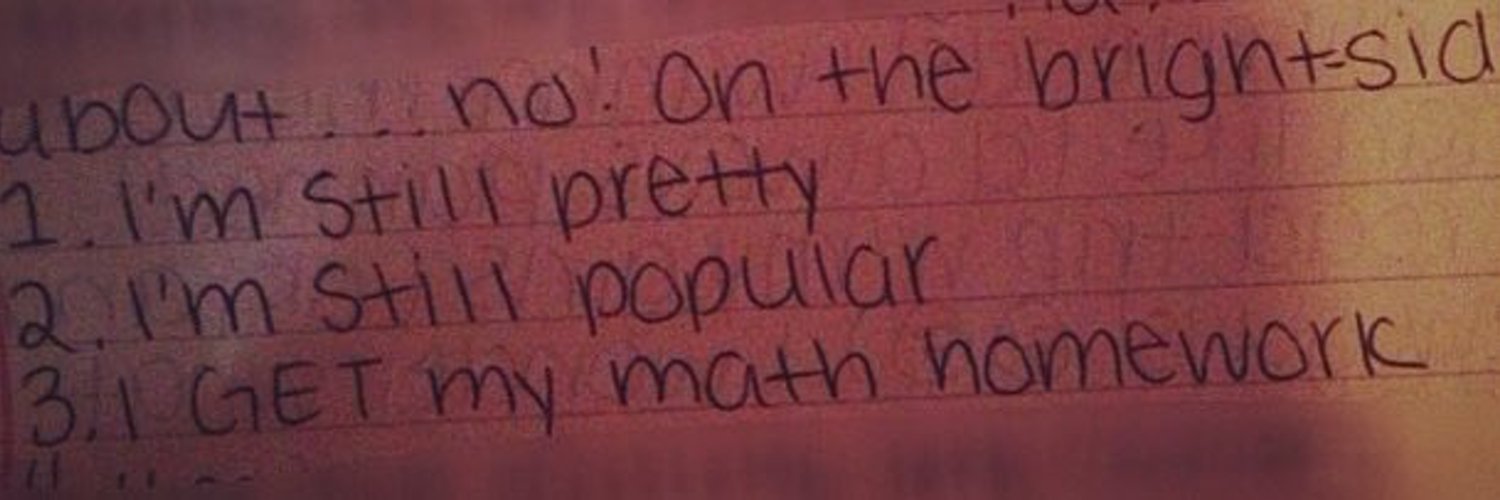 about... no! On the bright-sid
1. I'm still pretty
2. I'm still popular
3. I GET my math homework